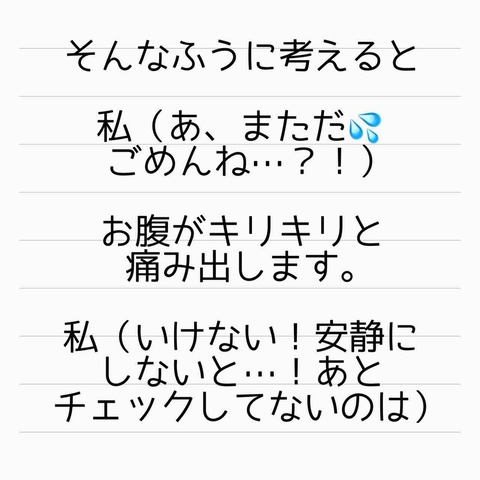 そんなふうに考えると
私（あ、まただ💦
ごめんね…？！）
お腹がキリキリと
痛み出します。
私（いけない！安静に
しないと…！あと
チェックしてないのは）